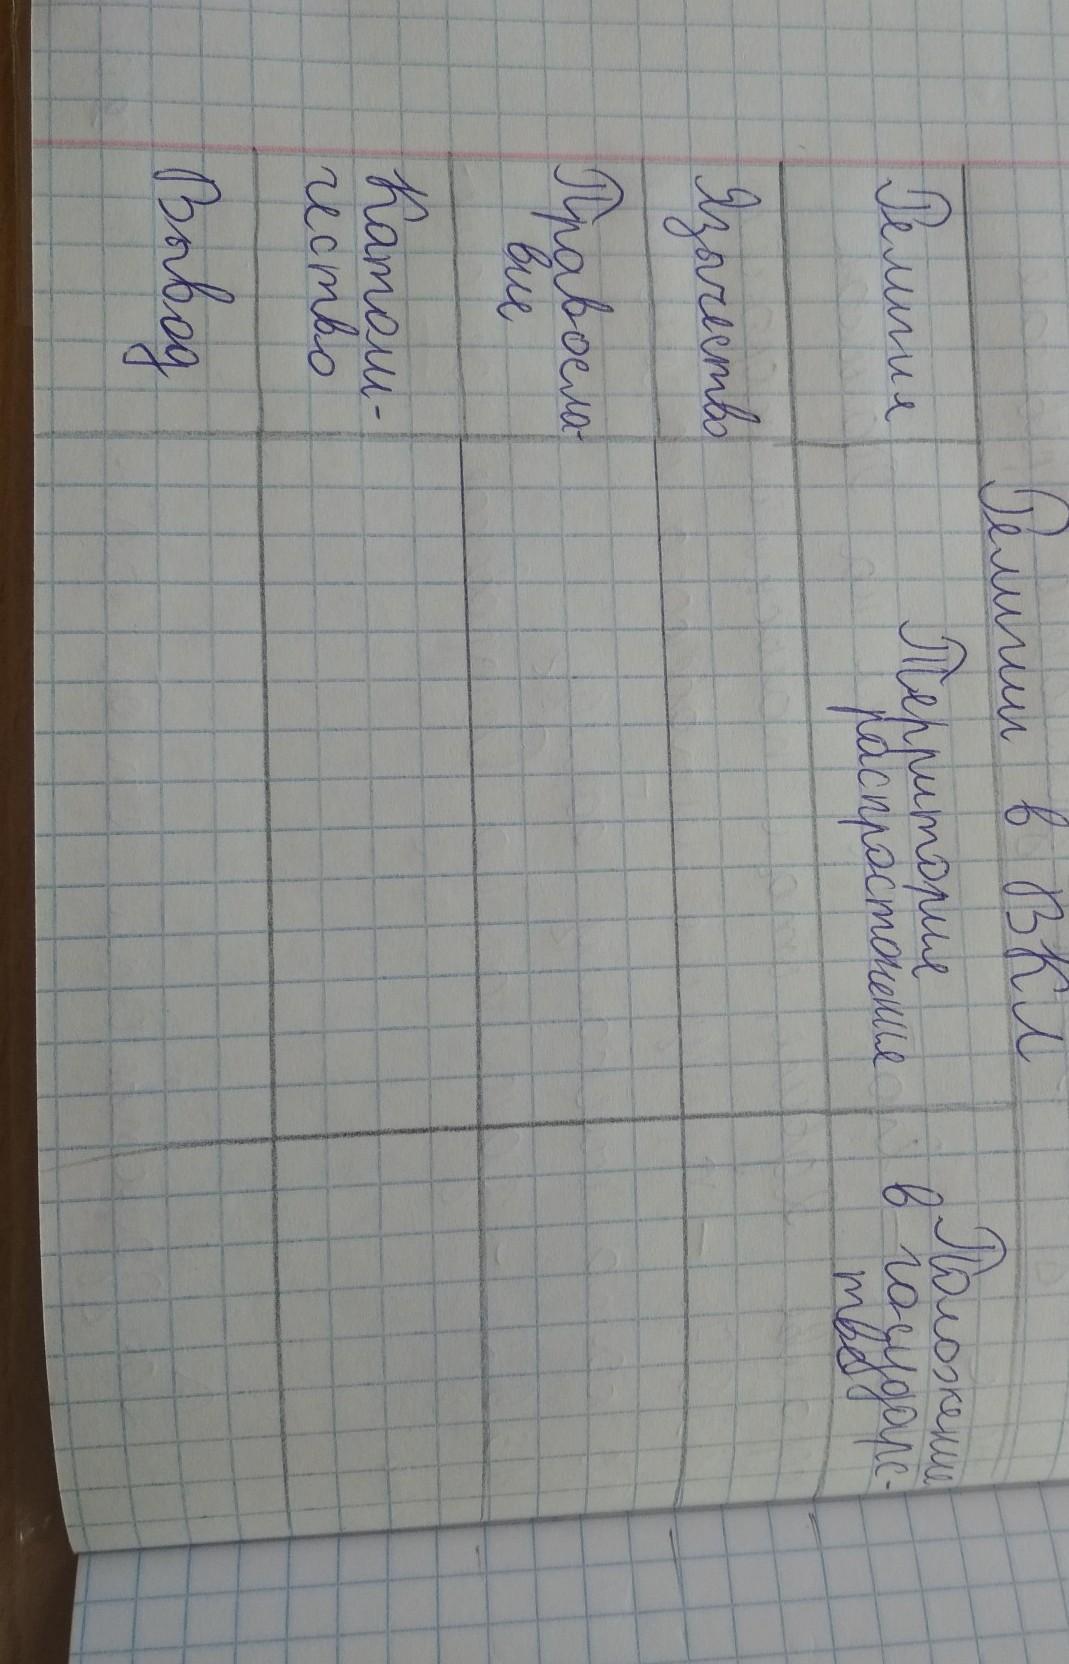 Религии в ВКЛ
Религия
Территория
распростонение
Положении
в государс-
тве
Язычество
Правосла-
вие
Католи-
чество
Вывод